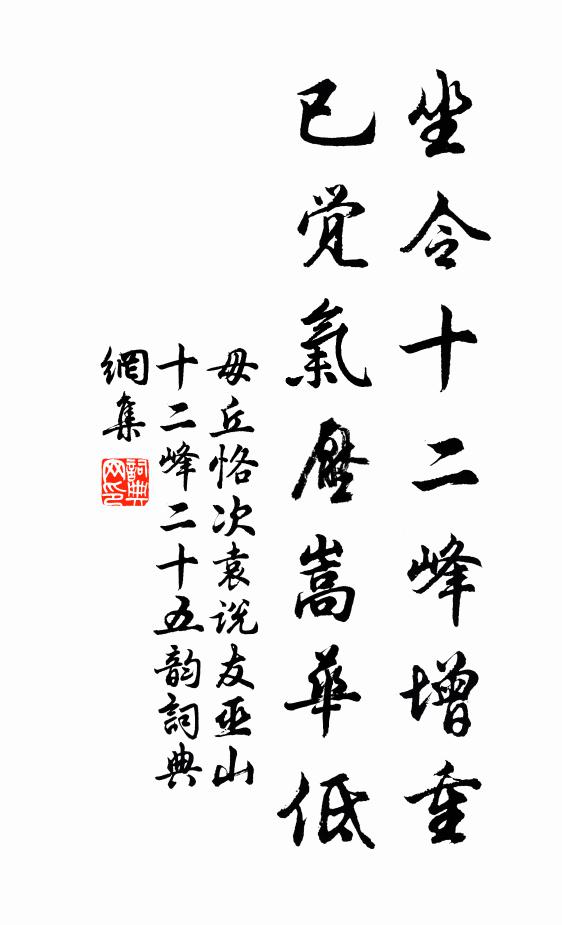 坐令十二峰增重
已觉氣壓嵩華低
毋丘恪次袁说友巫山
十二峰二十五韵詞典
網集
詞典網印